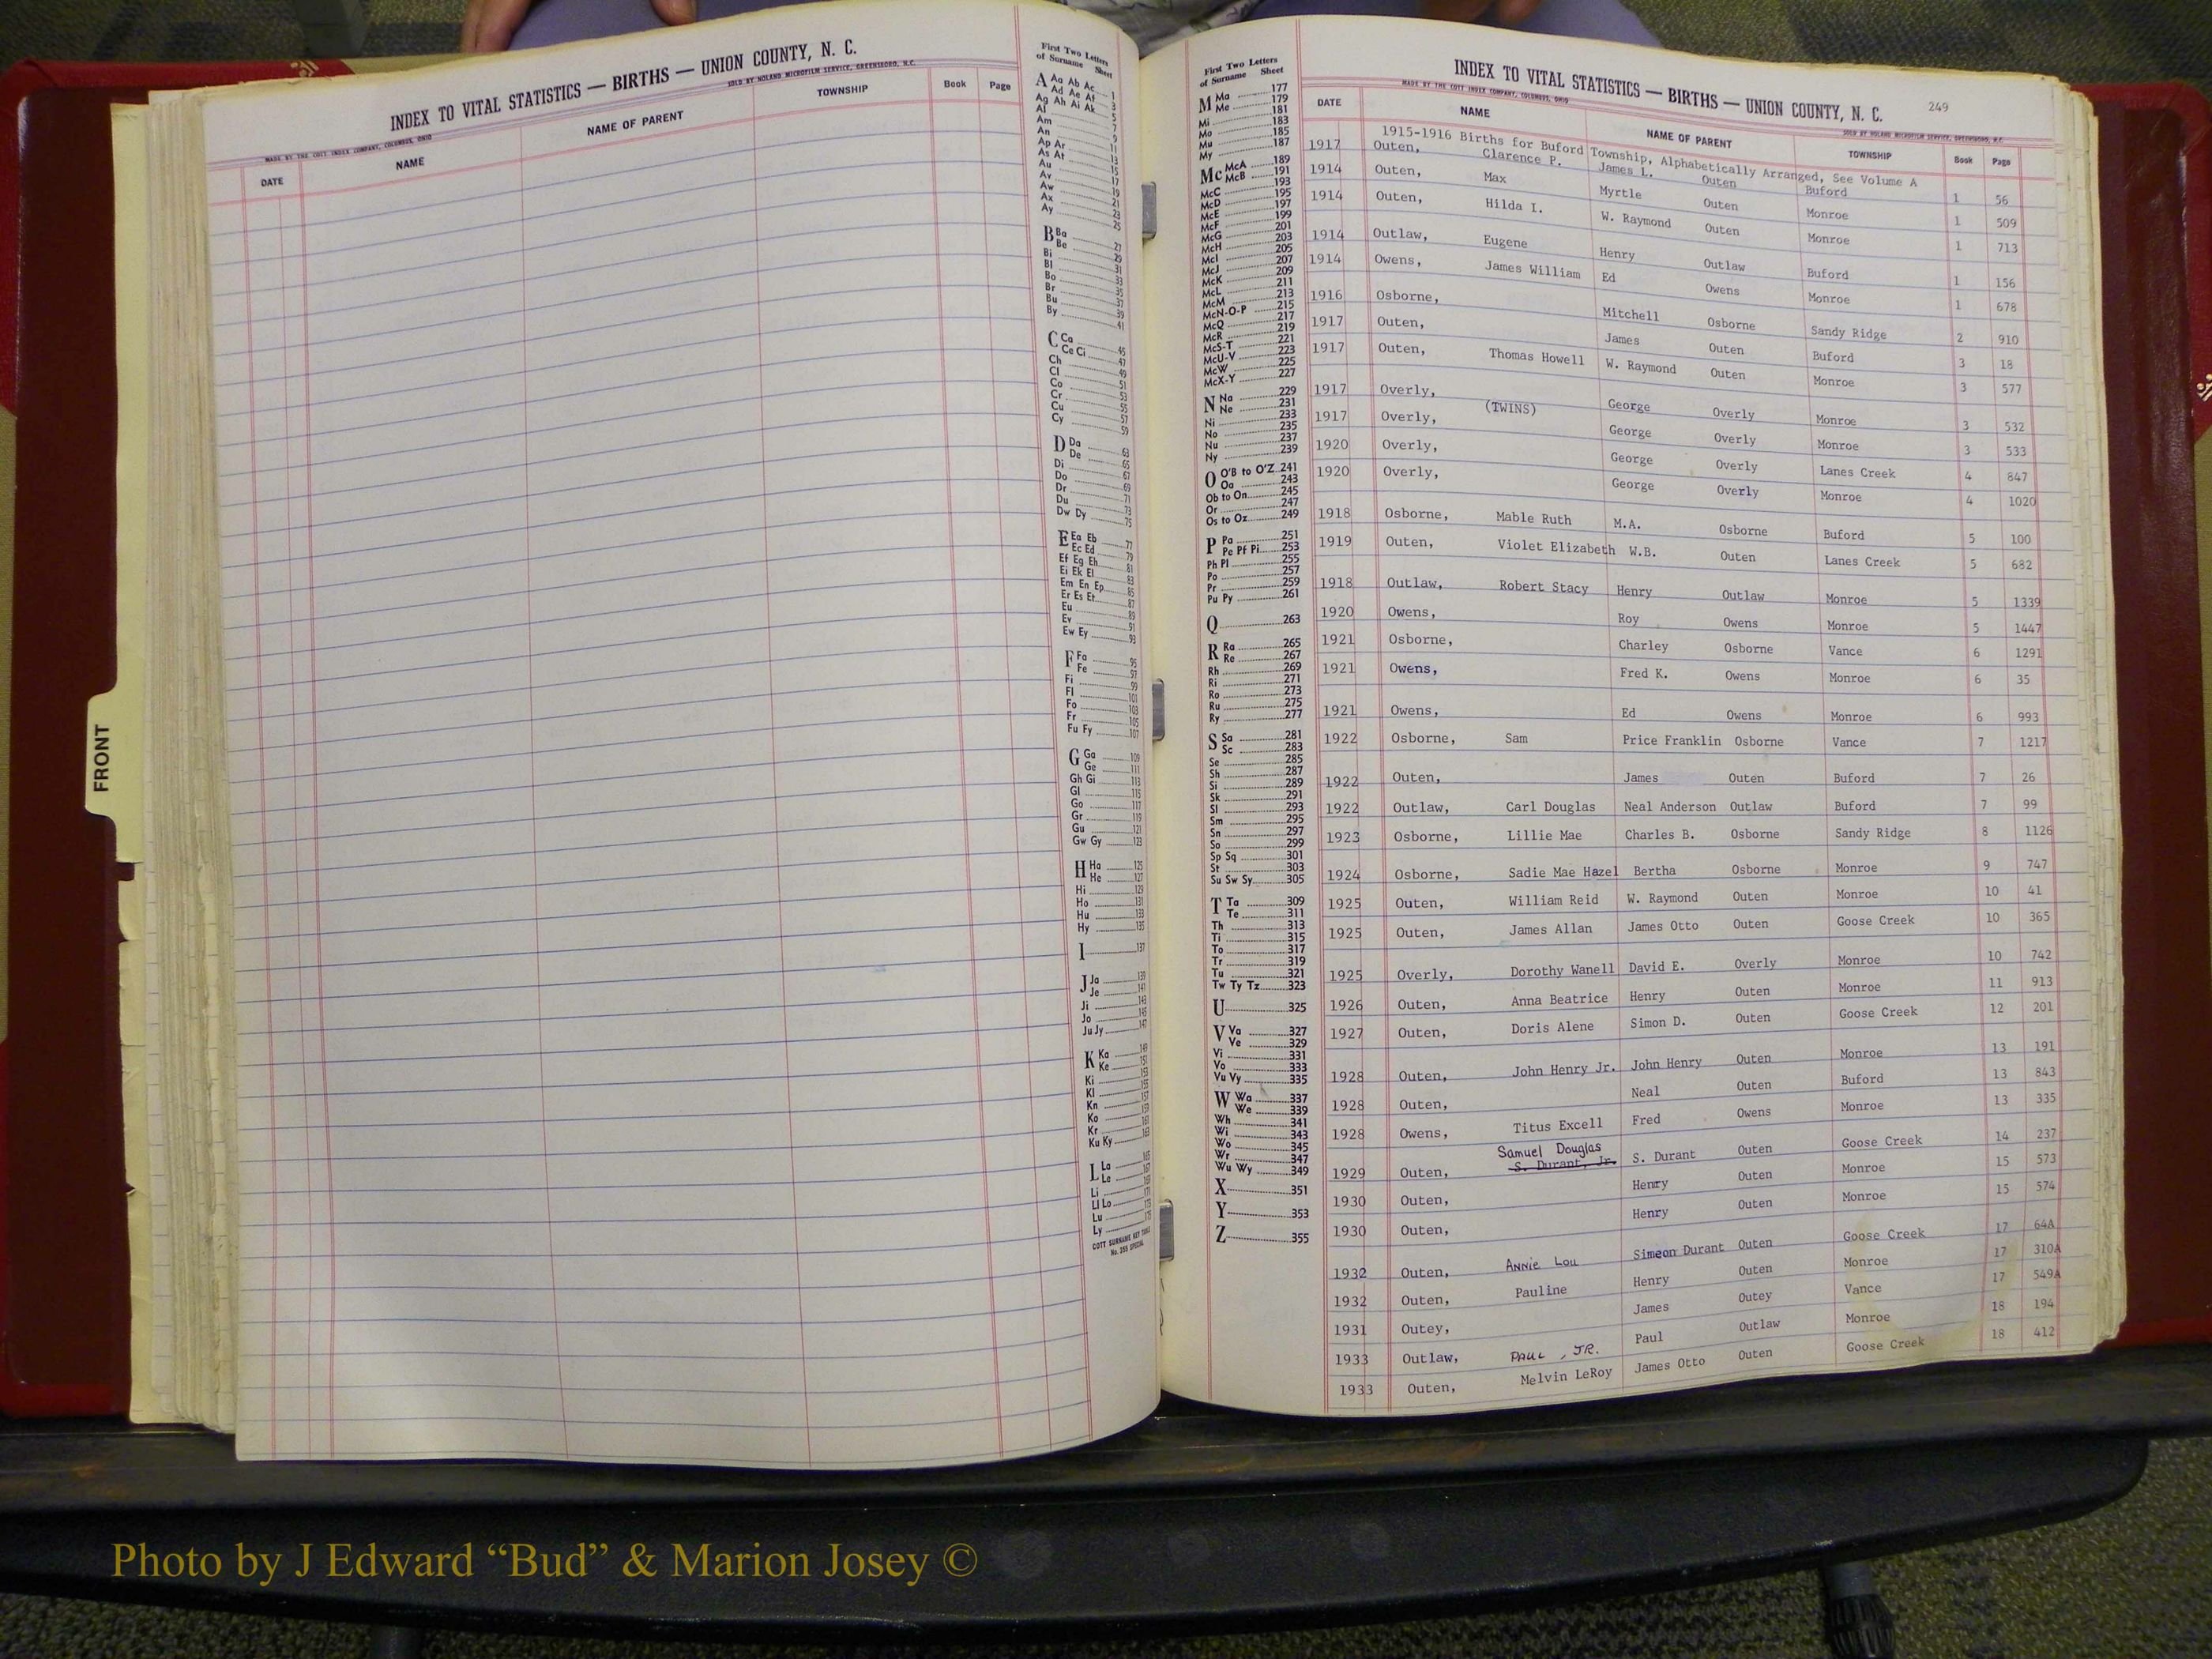 INDEX TO VITAL STATISTICS — BIRTHS — UNION COUNTY, N. C.
MADE BY THE COTT INDEX COMPANY, COLUMBUS, OHIO SOLD BY NOLAND MICROFILM SERVICE, GREENSBORO, N.C.
DATE NAME NAME OF PARENT TOWNSHIP Book Page
First Two Letters
of Surname Sheet
A Aa Ab Ac 1
Ad Ae Af 3
Ag Ah Ai Ak 5
Al 7
Am 9
An 11
Ap Ar 13
As At 15
Au 17
Av 19
Aw 21
Ax 23
Ay 25
B Ba 27
Be 29
Bi 31
Bl 33
Bo 35
Br 37
Bu 39
By 41
C Ca 45
Ce Ci 47
Ch 49
Cl 51
Co 53
Cr 55
Cu 57
Cy 59
D Da 63
De 65
Di 67
Do 69
Dr 71
Du 73
Dw Dy 75
E Ea Eb 77
Ec Ed 79
Ef Eg Eh 81
Ei Ek El 83
Em En Ep 85
Er Es Et 87
Eu 89
Ev 91
Ew Ey 93
F Fa 95
Fe 97
Fi 99
Fl 101
Fo 103
Fr 105
Fu Fy 107
G Ga 109
Ge 111
Gh Gi 113
Gl 115
Go 117
Gr 119
Gu 121
Gw Gy 123
H Ha 125
He 127
Hi 129
Ho 131
Hu 133
Hy 135
I 137
J Ja 139
Je 141
Ji 143
Jo 145
Ju Jy 147
K Ka 149
Ke 151
Ki 153
Kl 155
Kn 157
Ko 159
Kr 161
Ku Ky 163
L La 165
Le 167
Li 169
Ll Lo 171
Lu 173
Ly 175
COTT SURNAME KEY TABLE
No. 355 SPECIAL
FRONT
First Two Letters
of Surname Sheet
M Ma 177
Me 179
Mi 181
Mo 183
Mu 185
My 187
Mc McA 189
McB 191
McC 193
McD 195
McE 197
McF 199
McG 201
McH 203
McI 205
McJ 207
McK 209
McL 211
McM 213
McN-O-P 215
McQ 217
McR 219
McS-T 221
McU-V 223
McW 225
McX-Y 227
N Na 229
Ne 231
Ni 233
No 235
Nu 237
Ny 239
O O'B to O'Z 241
Oa 243
Ob to On 245
Or 247
Os to Oz 249
P Pa 251
Pe Pf Pi 253
Ph Pl 255
Po 257
Pr 259
Pu Py 261
Q 263
R Ra 265
Re 267
Rh 269
Ri 271
Ro 273
Ru 275
Ry 277
S Sa 281
Sc 283
Se 285
Sh 287
Si 289
Sk 291
Sl 293
Sm 295
Sn 297
So 299
Sp Sq 301
St 303
Su Sw Sy 305
T Ta 309
Te 311
Th 313
Ti 315
To 317
Tr 319
Tu 321
Tw Ty Tz 323
U 325
V Va 327
Ve 329
Vi 331
Vo 333
Vu Vy 335
W Wa 337
We 339
Wh 341
Wi 343
Wo 345
Wr 347
Wu Wy 349
X 351
Y 353
Z 355
INDEX TO VITAL STATISTICS — BIRTHS — UNION COUNTY, N. C. 249
MADE BY THE COTT INDEX COMPANY, COLUMBUS, OHIO SOLD BY NOLAND MICROFILM SERVICE, GREENSBORO, N.C.
DATE NAME NAME OF PARENT TOWNSHIP Book Page
1915-1916 Births for Buford Township, Alphabetically Arranged, See Volume A
1917 Outen, Clarence P. James L. Outen Buford 1 56
1914 Outen, Max Myrtle Outen Monroe 1 509
1914 Outen, Hilda I. W. Raymond Outen Monroe 1 713
1914 Outlaw, Eugene Henry Outlaw Buford 1 156
1914 Owens, James William Ed Owens Monroe 1 678
1916 Osborne, Mitchell Osborne Sandy Ridge 2 910
1917 Outen, James Outen Buford 3 18
1917 Outen, Thomas Howell W. Raymond Outen Monroe 3 577
1917 Overly, (TWINS) George Overly Monroe 3 532
1917 Overly, George Overly Monroe 3 533
1920 Overly, George Overly Lanes Creek 4 847
1920 Overly, George Overly Monroe 4 1020
1918 Osborne, Mable Ruth M.A. Osborne Buford 5 100
1919 Outen, Violet Elizabeth W.B. Outen Lanes Creek 5 682
1918 Outlaw, Robert Stacy Henry Outlaw Monroe 5 1339
1920 Owens, Roy Owens Monroe 5 1447
1921 Osborne, Charley Osborne Vance 6 1291
1921 Owens, Fred K. Owens Monroe 6 35
1921 Owens, Ed Owens Monroe 6 993
1922 Osborne, Sam Price Franklin Osborne Vance 7 1217
1922 Outen, James Outen Buford 7 26
1922 Outlaw, Carl Douglas Neal Anderson Outlaw Buford 7 99
1923 Osborne, Lillie Mae Charles B. Osborne Sandy Ridge 8 1126
1924 Osborne, Sadie Mae Hazel Bertha Osborne Monroe 9 747
1925 Outen, William Reid W. Raymond Outen Monroe 10 41
1925 Outen, James Allan James Otto Outen Goose Creek 10 365
1925 Overly, Dorothy Wanell David E. Overly Monroe 10 742
1926 Outen, Anna Beatrice Henry Outen Monroe 11 913
1927 Outen, Doris Alene Simon D. Outen Goose Creek 12 201
1928 Outen, John Henry Jr. John Henry Outen Monroe 13 191
1928 Outen, Neal Outen Buford 13 843
1928 Owens, Titus Excell Fred Owens Monroe 13 335
Samuel Douglas
1929 Outen, S. Durant, Jr. S. Durant Outen Goose Creek 14 237
1930 Outen, Henry Outen Monroe 15 573
1930 Outen, Henry Outen Monroe 15 574
1932 Outen, Annie Lou Simeon Durant Outen Goose Creek 17 64A
1932 Outen, Pauline Henry Outen Monroe 17 310A
1931 Outey, James Outey Vance 17 549A
1933 Outlaw, PAUL, JR. Paul Outlaw Monroe 18 194
1933 Outen, Melvin LeRoy James Otto Outen Goose Creek 18 412
Photo by J Edward “Bud” & Marion Josey ©